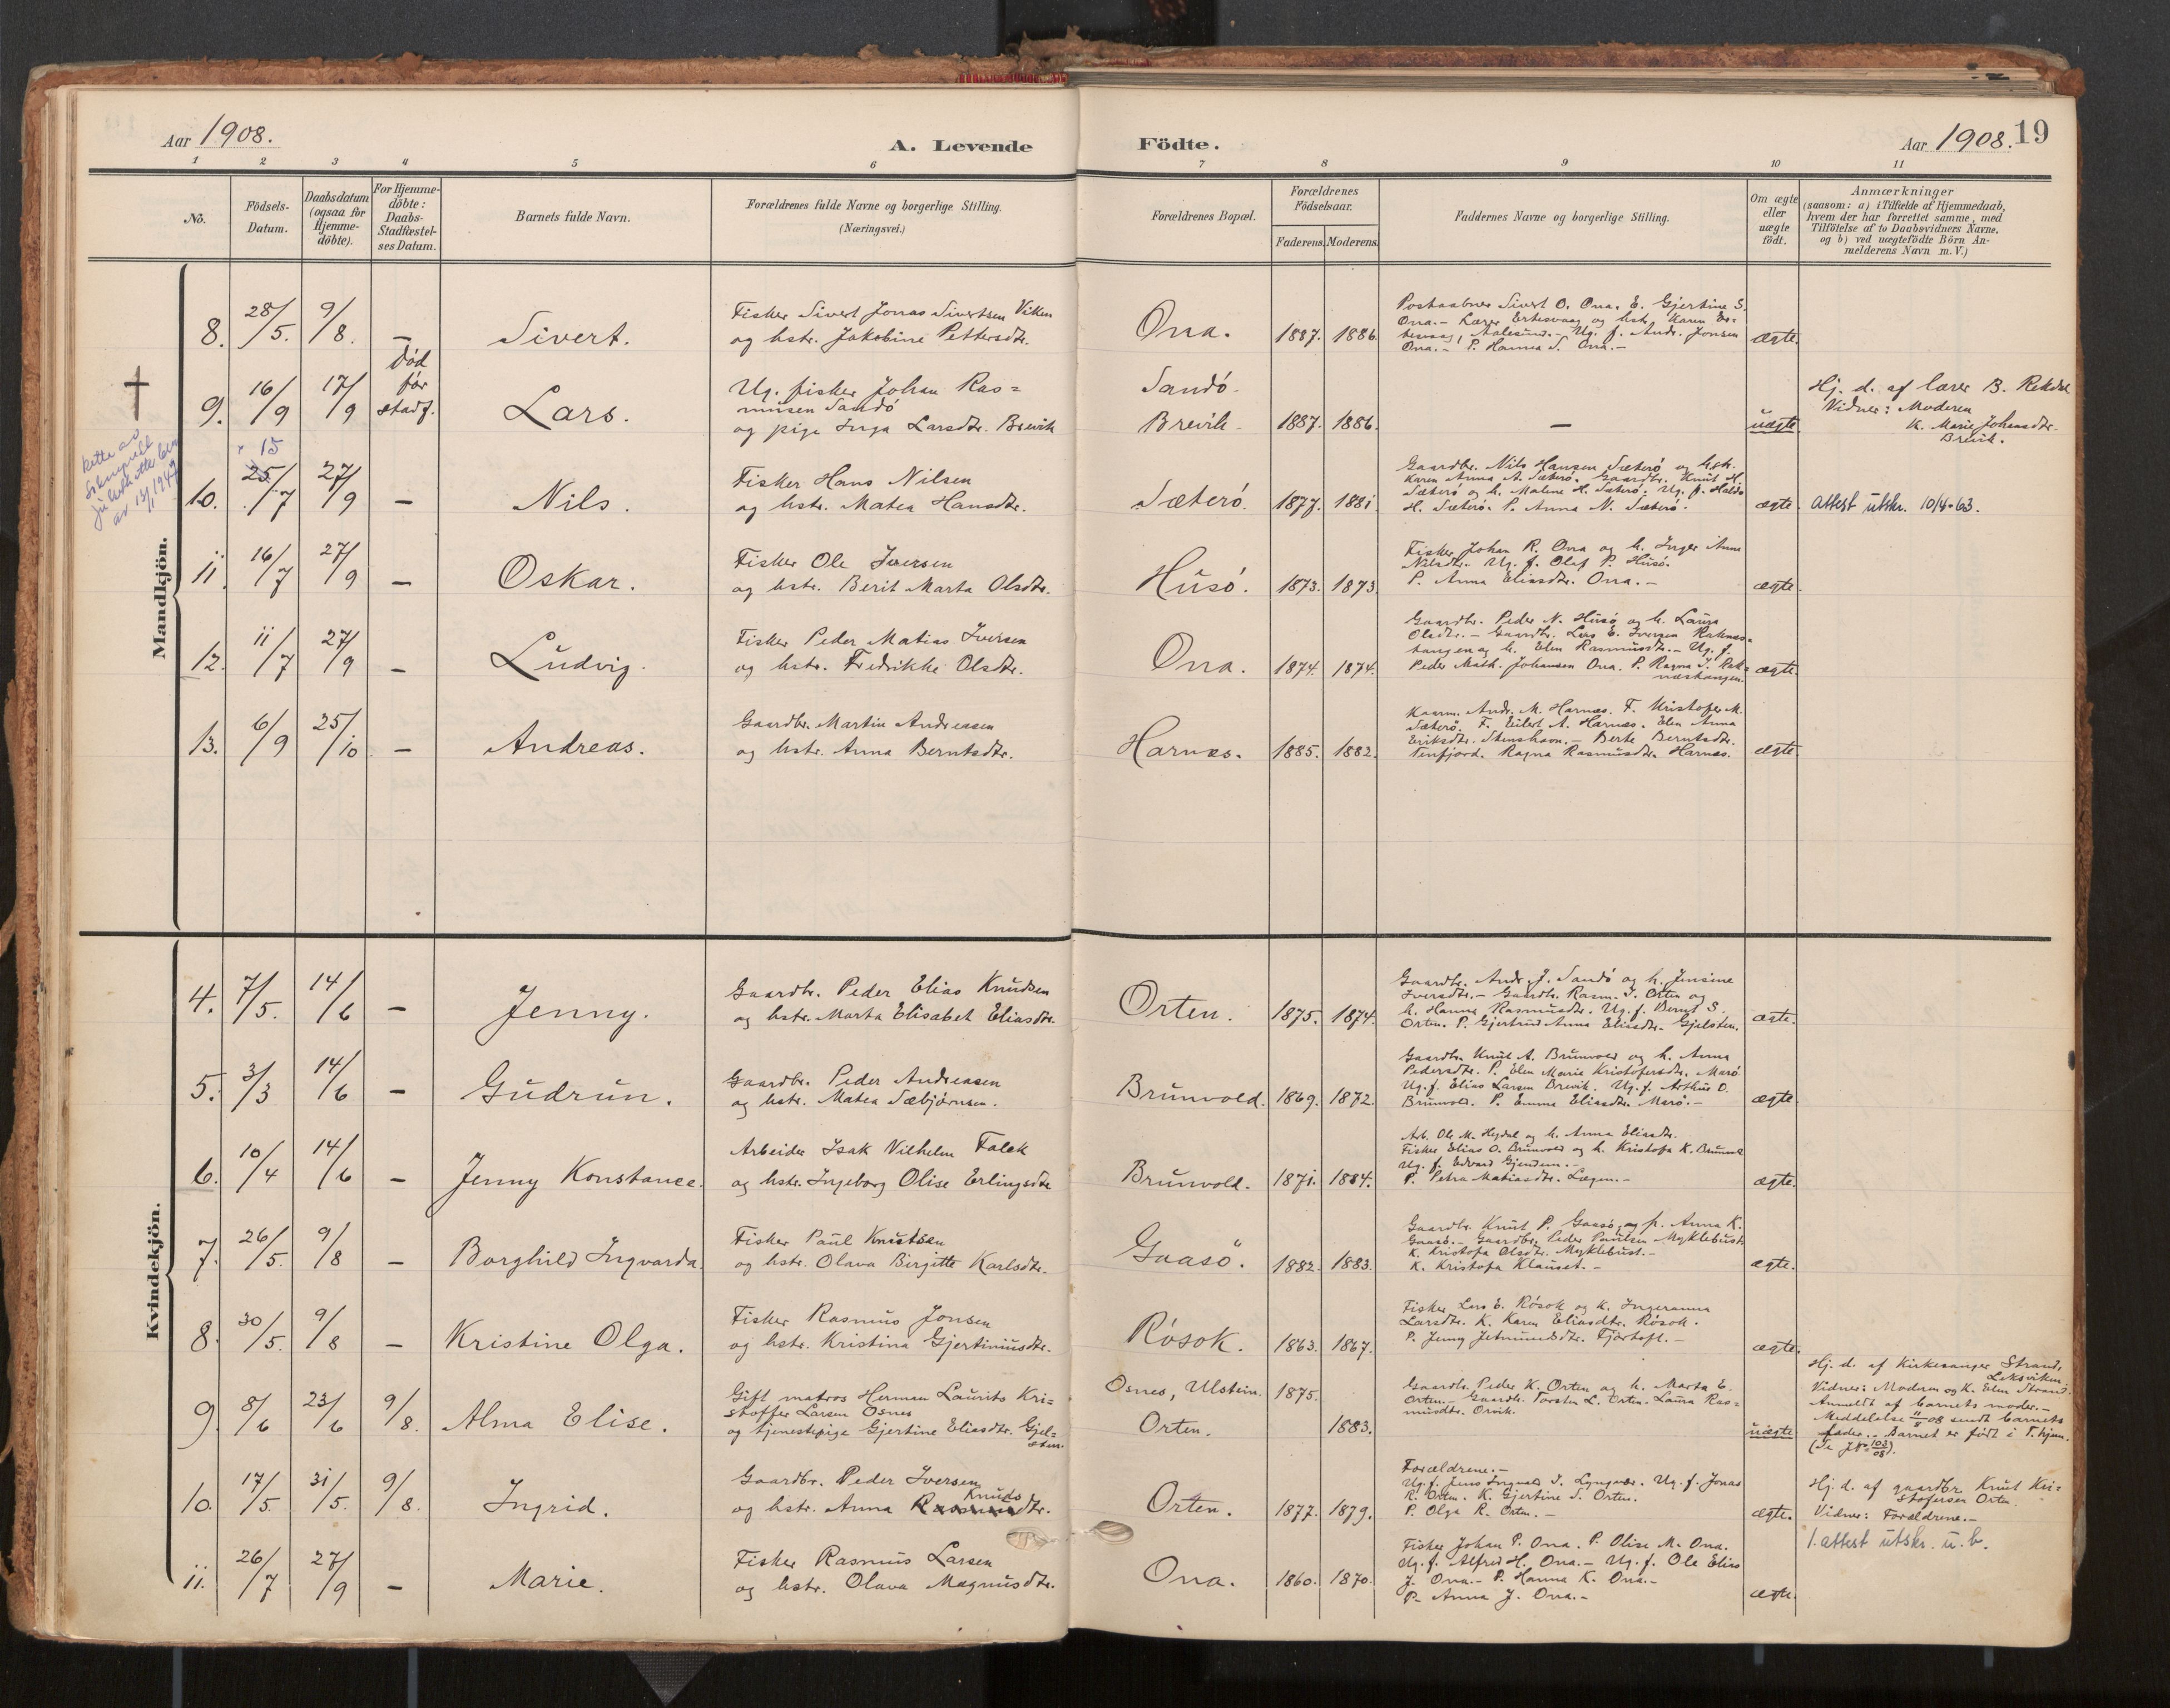 Aar 1908.
A. Levende
Födte.
Aar 1908. 19
1 2 3 4 5 6 7 8 9 10 11
No.
Födsels-
Datum.
Daabsdatum
(ogsaa for
Hjemme-
döbte).
For Hjemme-
döbte:
Daabs-
Stadfæstel-
ses Datum.
Barnets fulde Navn.
Forældrenes fulde Navne og borgerlige Stilling.
(Næringsvei.)
Forældrenes Bopæl.
Forældrenes
Födselsaar.
Faderens. Moderens.
Faddernes Navne og borgerlige Stilling.
Om ægte
eller
uægte
født.
Anmærkninger
(saasom: a) i Tilfælde af Hjemmedaab,
hvem der har forrettet samme, med
Tilföielse af to Daabsvidners Navne,
og b) ved uægtefödte Börn An-
melderens Navn m. V.)
Mandkjön.
8. 28/5. 9/8. – Sivert.
Fisker Sivert Jonas Sivertsen Viken
og hstr. Jakobine Pettersdtr.
Ona. 1887. 1886.
Postaabner Sivert O. Ona. E. Gjertine S.
Ona. – Lærer Ertesvaag og hstr. Karen Er-
tesvaag, Aalesund. – Ug. f. Andr. Jonsen
Ona. – P. Hanna S. Ona. –
ægte.
9. 16/9 17/9
död
før
stadf.
Lars.
Ug. fisker Johan Ras=
musen Sandö
og pige Inga Larsdtr. Brevik
Sandö.
Brevik. 1887. 1886. – uægte.
Hj. d. af lærer B. Rekdal
Vidner: Moderen
K. Marie Johansdtr.
Brevik.
× 15
10. 25/7 27/9 – Nils.
Fisker Hans Nilsen
og hstr. Matea Hansdtr.
Sæterö. 1877. 1881.
Gaardbr. Nils Hansen Sæterö og hstr.
Karen Anna A. Sæterö. Gaardbr. Knut H.
Sæterö og h. Malene H. Sæterö. Ug. f.
H. Sæterö. P. Anna N. Sæterö.
ægte. Attest utskr. 10/4-63.
11. 16/7 27/9 – Oskar.
Fisker Ole Iversen
og hstr. Berit Marta Olsdtr.
Husö. 1873. 1873.
Fisker Johan R. Ona og h. Inger Anna
Nilsdtr. Ug. f. Olaf P. Husö.
P. Anna Eliasdtr. Ona. –
ægte.
12. 11/7 27/9 – Ludvig.
Fisker Peder Matias Iversen
og hstr. Fredrikke Olsdtr.
Ona. 1874. 1874.
Gaardbr. Peder N. Husö og h. Laura
Olsdtr. – Gaardbr. Lars E. Iversen Raknes=
tangen og h. Elen Rasmusdtr. – Ug. f.
Peder Math. Johansen Ona. P. Ragna I. Rak=
næstangen.
ægte.
13. 6/9 25/10 – Andreas.
Gaardbr. Martin Andreasen
og hstr. Anna Berntsdtr.
Harnæs. 1885. 1882.
Kaarm. Andr. M. Harnæs. F. Kristofer M.
Sæterö. F. Eilert A. Harnæs. Elen Anna
Eriksdtr. Stenshavn. – Berte Berntsdtr.
Tenfjord. Ragna Rasmusdtr. Harnæs.
ægte.
Kvindekjön.
4. 7/5. 14/6 – Jenny.
Gaardbr. Peder Elias Knudsen
og hstr. Marta Elisabet Eliasdtr.
Orten. 1875. 1874.
Gaardbr. Andr. J. Sandö og h. Jensine
Iversdtr. – Gaardbr. Rasm. I. Orten og
h. Hanna Rasmusdtr. Ug. f. Bernt S.
Orten. P. Gjertrud Anna Eliasdtr. Gjelsten.
ægte.
5. 3/3 14/6 – Gudrun.
Gaardbr. Peder Andreasen
og hstr. Matea Sæbjörnsen.
Brunvold. 1869. 1872.
Gaardbr. Knut A. Brunvold og h. Anna
Pedersdtr. P. Elen Marie Kristofersdtr. Marö
Ug. f. Elias Larsen Brevik. Ug. f. Arthur O.
Brunvold. P. Emma Eliasdtr. Marö. –
ægte.
6. 10/4 14/6 – Jenny Konstance.
Arbeider Isak Vilhelm Falck
og hstr. Ingeborg Olise Erlingsdtr.
Brunvold. 1871. 1884.
Arb. Ole M. Hegdal og h. Anna Eliasdtr.
Fisker Elias O. Brunvold og h. Kristofa K.
Ug. f. Edvard Gjendem. –
P. Petra Matiasdtr. Lægen. –
ægte.
7. 26/5. 9/8 – Borghild Ingvarda.
Fisker Paul Knutsen
og hstr. Olava Birgitte Karlsdtr.
Gaasö. 1882. 1883.
Gaardbr. Knut P. Gaasö, og h. Anna K.
Gaasö. – Gaardbr. Peder Paulsen Myklebust
K. Kristofa Olsdtr. Myklebust. –
K. Kristofa Klauset. –
ægte.
8. 30/5. 9/8 – Kristine Olga.
Fisker Rasmus Jonsen
og hstr. Kristina Gjertiniusdtr.
Rösok. 1863. 1867.
Fisker Lars E. Rösok og K. Ingeranna
Larsdtr. K. Karen Eliasdtr. Rösok.
P. Jenny Jetmundsdtr. Fjörtoft. –
ægte.
9. 8/6 23/6 9/8. Alma Elise.
Gift matros Herman Laurits Kri=
stoffer Larsen Osnes
og tjenestepige Gjertine Eliasdtr. Gjel=
sten.
Osnes, Ulstein. 1875.
Orten. 1883.
Gaardbr. Peder K. Orten og h. Marta E.
Orten. – Gaardbr. Torsten L. Orten. Laura Ras=
musdtr. Orvik.
uægte
Hj. d. af Kirkesanger Strand,
Leksviken.
Vidner: Moderen og K. Elen Strand.
Anmeldt af barnets moder. –
Meddelelse 11/8 08 sendt barnets
fader. – Barnet er født i T.hjem.
10. 17/5. 31/5. 9/8. Ingrid.
Gaardbr. Peder Iversen
Knuds
og hstr. Anna Rasmusdtr.
Orten. 1877. 1879.
Forældrene. –
Ug. f. Jens Ingvald I. Lyngvær. Ug. f. Jonas
R. Orten. K. Gjertine S. Orten.
P. Olga R. Orten. –
ægte.
Hj. d. af gaardbr. Knut Kri=
stofersen Orten.
Vidner: Forældrene. –
1. attest utskr. u. b.
11. 26/7 27/9 – Marie.
Fisker Rasmus Larsen
og hstr. Olava Magnusdtr.
Ona. 1860. 1870.
Fisker Johan P. Ona. P. Olise M. Ona.
Ug. f. Alfred H. Ona. – Ug. f. Ole Elias
J. Ona. – P. Hanna K. Ona. –
P. Anna J. Ona. –
ægte.